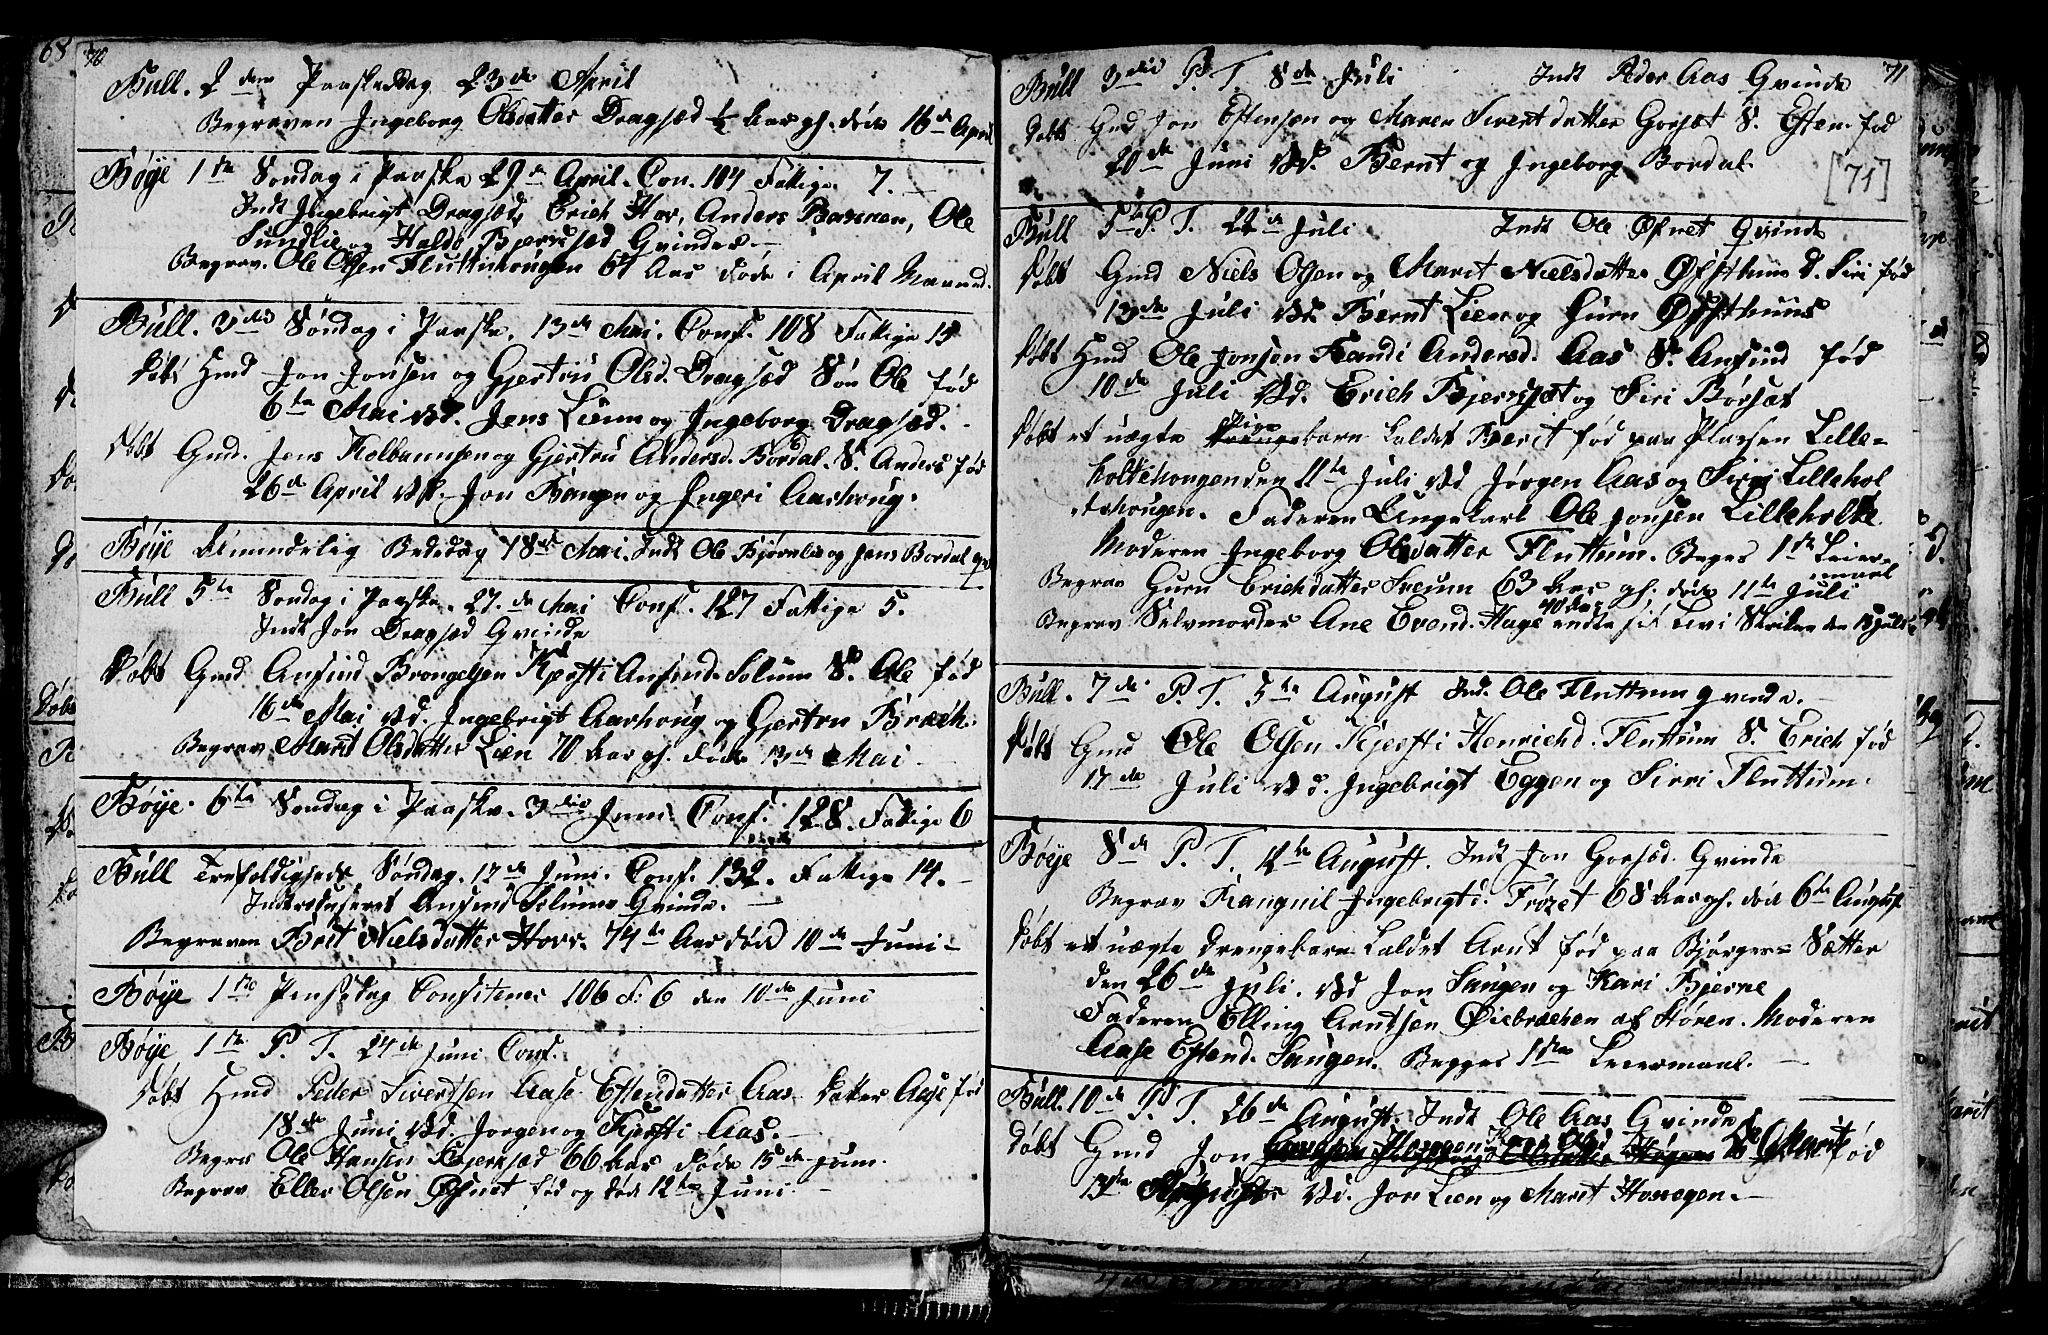 68 70
Bull. 2den Paaskedag 23de April
Begraven Ingeborg Olsdatter Dragsæd ½ Aar gl. død 16de April
Bøye 1ste Søndag i Paaske 29de April. Con. 104 Fattige 7.
Indt Ingebrigt Dragsæd, Erich Hov, Anders Barmen, Ole
Sundlie og Haldo Bjerksæd Qvinder.
Begrav. Ole Olsen Fluttumougen 61 Aar døde i April Maaned.
Bull. 3die Søndag i Paaske. 13de Mai. Conf. 108 Fattige 15
Døbt Hmd Jon Jonsen og Gjertru Olsd. Dragsæd Søn Ole fød
6te Mai Vd. Jens Lien og Ingeborg Dragsæd.
Døbt Gmd. Jens Kolbannsen og Gjertru Andersd. Bordal. S. Anders fød
26de April Vd. Jon Bangen og Ingeri Aashoug.
Bøye Almindelig Bededag 18de Mai. Indt Ole Bjørnlie og Jens Bordal Qv
Bull 5te Søndag i Paaske. 27de Mai Conf. 127 Fattige 5.
Indt Jon Dragsæd Qvinde
Døbt Gmd Ansind Brongelsen Kjersti Ansind. Solum S. Ole fød
16de Mai Vd. Ingebrigt Aashoug og Gjertru Bræch.
Begrav Marit Olsdatter Lien 70 Aar gl. døde 13de Mai
Bøye. 6te Søndag i Paaske. 3die Juni Conf. 128. Fattige 6
Bull Trefoldigheds Søndag. 17de Juni. Conf. 132. Fattige 14.
Introduseret Ansind Solums Qvinde.
Begraven Brit Nielsdatter Hovs. 74de Aar død 10de Juni
Bøye 1ste Pinsedag Confitenter 106 F. 6 den 10de Juni
Bøye 1ste P. T. 24de Juni Conf.
Døbt Hmd Peder Sivertsen Aase Estendatter Aas. Datter Aase fød
18de Juni Vd. Jorgen og Kjersti Aas.
Begrav Ole Hansen Bjerksæd 66 Aar døde 15de Juni.
Begrav Eller Olsen Øfnet fød og død 12te Juni.
71
Bull 3die P. T. 8de Juli Indt Peder Aas Qvinde
Døbt Gmd Jon Estensen og Maren Sivertdatter Gorsæt S. Esten fød
20de Juni Vd. Bernt og Ingeborg Bordal
[71]
Bull 5te P. T. 22de Juli Indt Ole Øfnet Qvinde
Døbt Gmd Niels Olsen og Marit Nielsdatter Øfsthuus D. Siri fød
13de Juli Vd. Bernt Lien og Gurn Øfsthuus
Døbt Hmd Ole Jonsen Randi Andersd. Aas S. Ansind fød
10de Juli Vd. Erich Bjerksæt og Siri Børsæt
Døbt et uægte Pige barn kaldet Berit fød paa Pladsen Lille=
holtehougen den 11te Juli Vd Jørgen Aas og Sirri Lillehol
tehougen. Faderen Ungkarl Ole Jonsen Lilleholte
Moderen Ingeborg Olsdatter Fluttum. Begges 1ste Leier=
maal
Begrav Gurn Erichdatter Sveum 63 Aar gl. døde 11te Juli
Begrav Selvmorder Ane Evend. Hage 40 Aar endte sit Livi Strikke den 13 Juli
Bull. 7de P. T. 5te August Ind. Ole Fluttum qvinde.
Døbt Gmd Ole Olsen Kjersti Henrichd. Fluttum S. Erich fød
17de Juli Vd. Ingebrigt Eggen og Sirri Fluttum.
Bøye 8de P. T. 12te August. Indt Jon Gorsæd Qvinde
Begrav Rangnil Ingebrigtd. Frøset 68 Aar gl. død 6te August
Døbt et uægte Drengebarn kaldet Arnt fød paa Bjørger= Sætter
den 26de Juli. Vd Jon Langen og Kari Bjerne
Faderen Elling Arntsen Øiebrækken af Støren. Moderen
Aase Estend. Langen. Begges 1ste Leiermaal.
Bull. 10de P. T. 26de August. Indt Ole Aas Qvinde
Døbt Gmd Jon D Marit fød
13de August Vd. Jon Lien og Marit Hovegen.